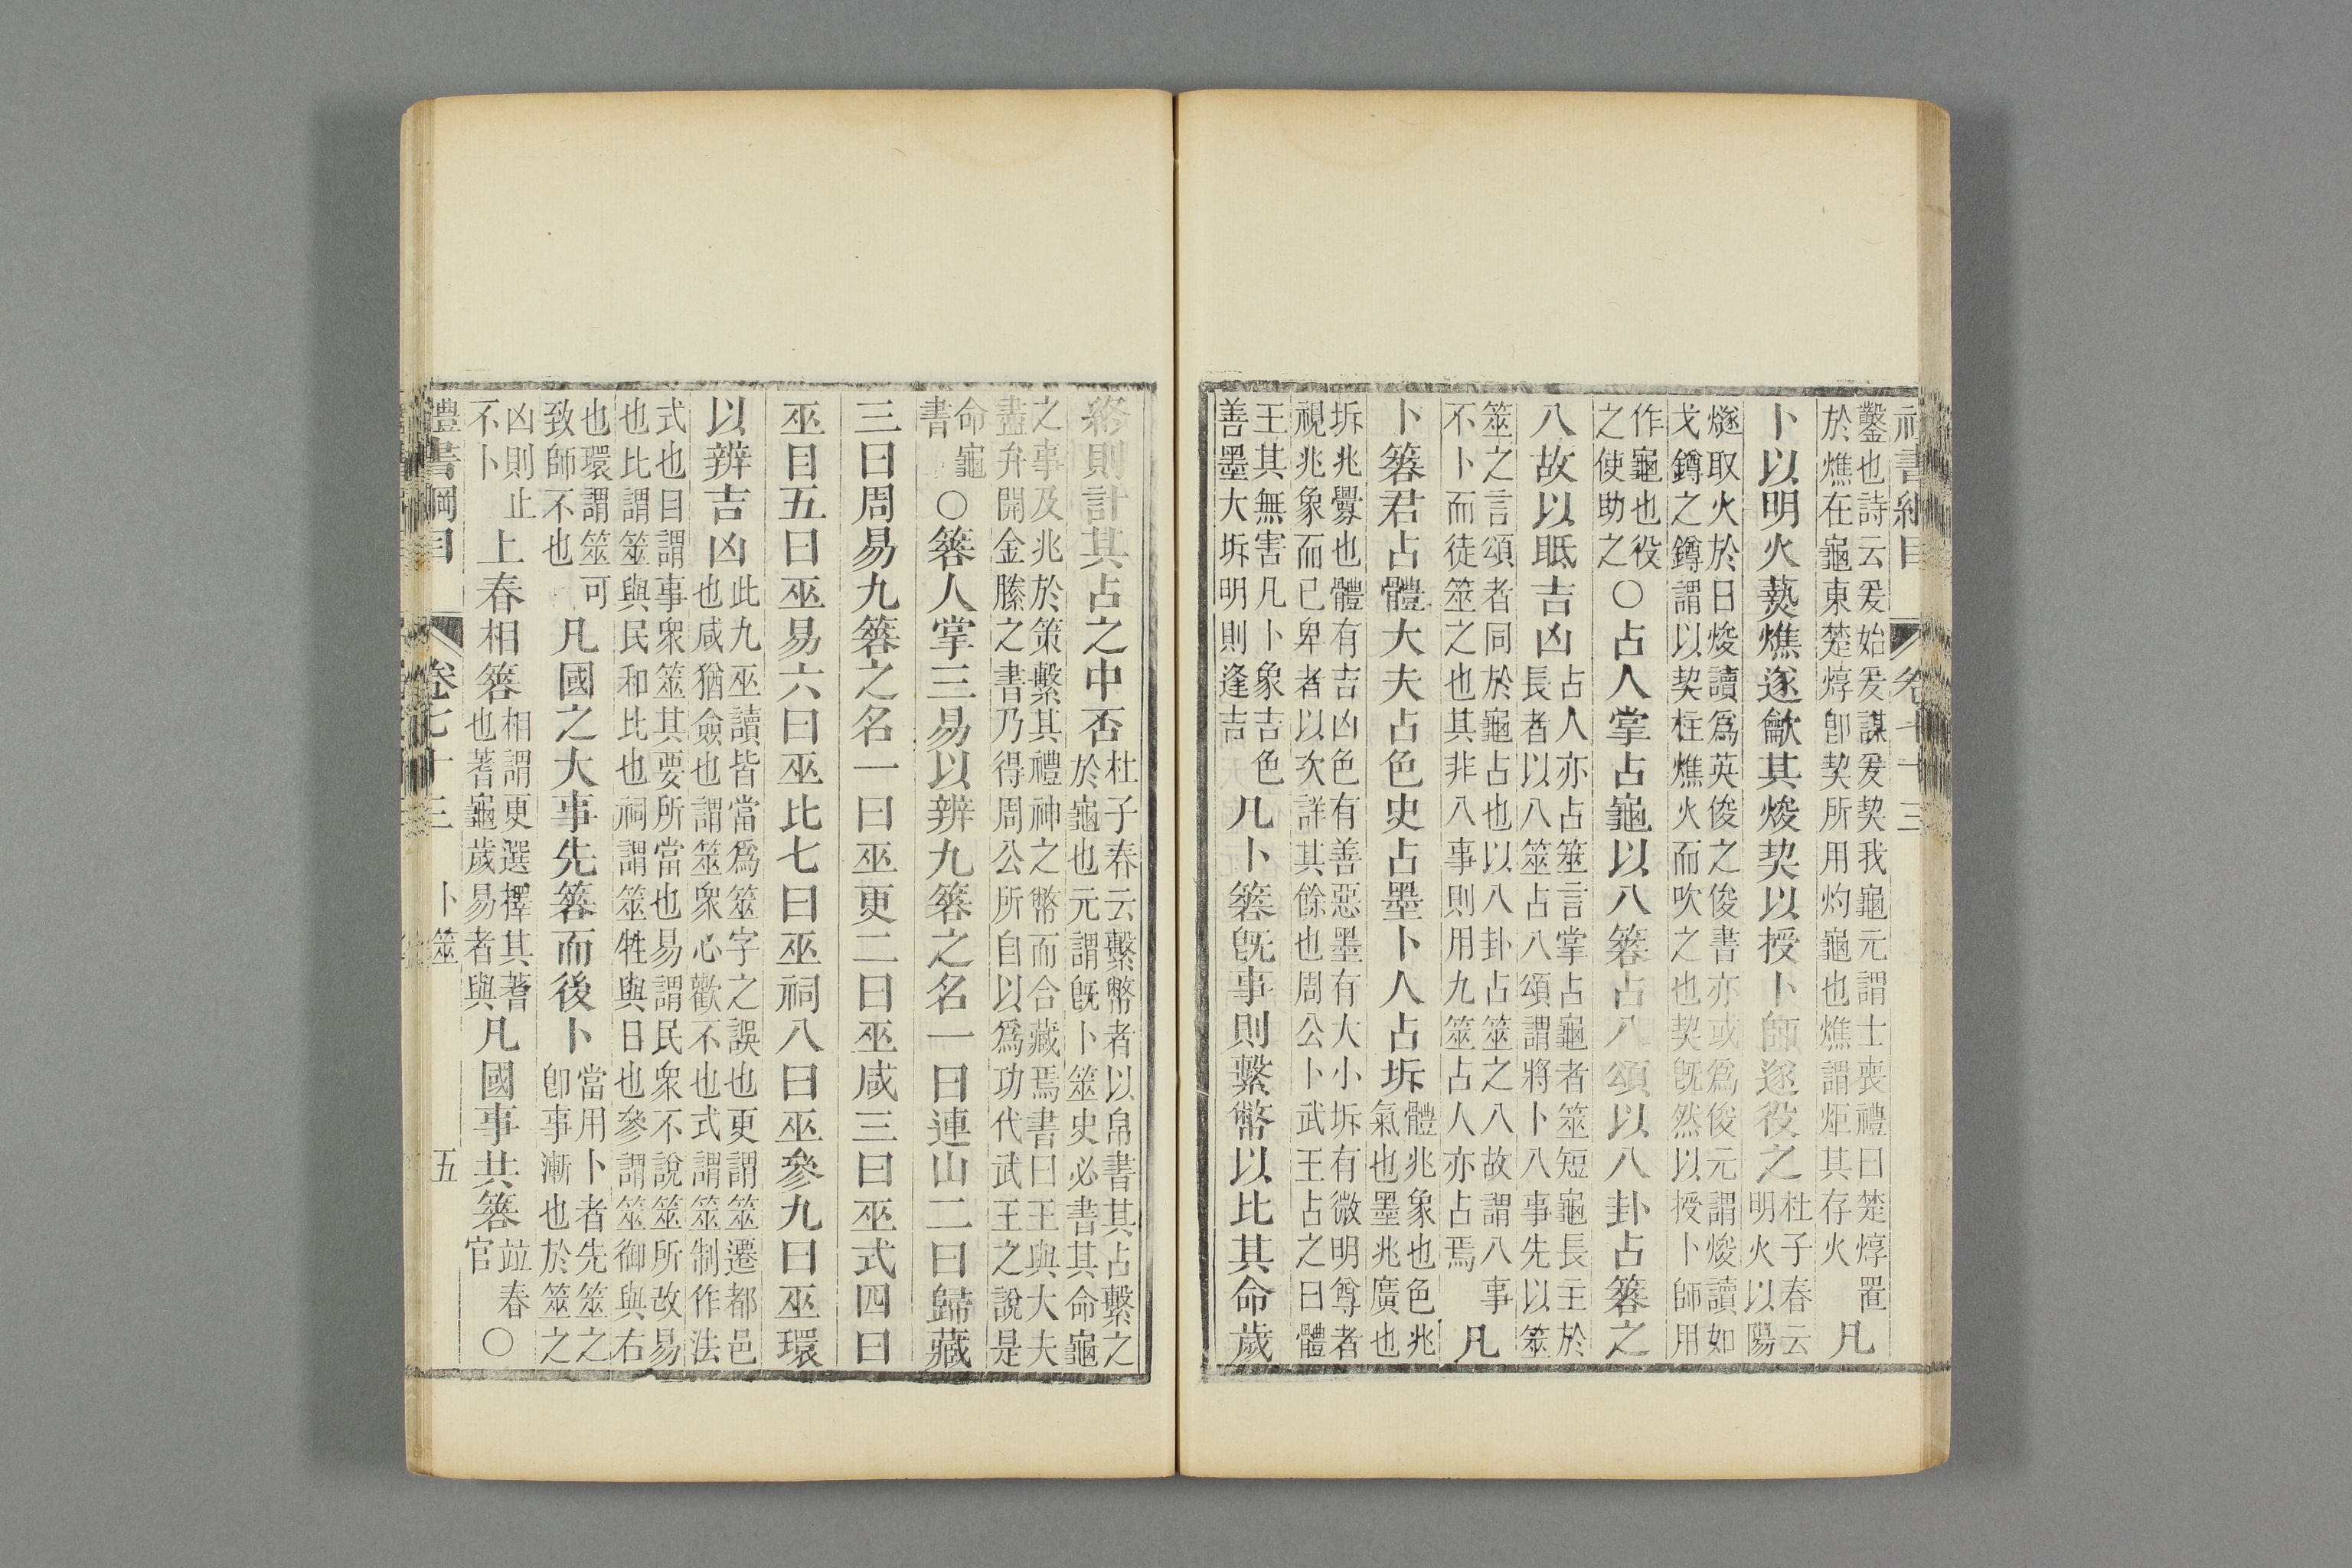 禮書綱目 卷七十三
鑿也詩云爰始爰謀爰契我龜元謂士喪禮曰楚焞置
於燋在龜東楚焞卽契所用灼龜也燋謂炬其存火 凡
卜以明火爇燋遂龡其焌契以授卜師遂役之 杜子春云明火以陽
燧取火於日焌讀爲英俊之俊書亦或爲俊元謂焌讀如
戈鐏之鐏謂以契柱燋火而吹之也契旣然以授卜師用
作龜也役之使助之 ○占人掌占龜以八簭占八頌以八卦占簭之
八故以眡吉凶 占人亦占筮言掌占龜者筮短龜長主於
長者以八筮占八頌謂將卜八事先以筮
筮之言頌者同於龜占也以八卦占筮之八故謂八事
不卜而徒筮之也其非八事則用九筮占人亦占焉 凡
卜簭君占體大夫占色史占墨卜人占坼 體兆象也色兆氣也墨兆廣也
坼兆釁也體有吉凶色有善惡墨有大小坼有微明尊者
視兆象而已卑者以次詳其餘也周公卜武王占之曰體
王其無害凡卜象吉色善墨大坼明則逢吉 凡卜簭旣事則繫幣以比其命歲
終則計其占之中否 杜子春云繫幣者以帛書其占繫之
於龜也元謂旣卜筮史必書其命龜
之事及兆於策繫其禮神之幣而合藏焉書曰王與大夫
盡弁開金縢之書乃得周公所自以爲功代武王之說是
命龜書 ○簭人掌三易以辨九簭之名一曰連山二曰歸藏
三曰周易九簭之名一曰巫更二曰巫咸三曰巫式四曰
巫目五曰巫易六曰巫比七曰巫祠八曰巫參九曰巫環
以辨吉凶 此九巫讀皆當爲筮字之誤也更謂筮遷都邑
也咸猶僉也謂筮衆心歡不也式謂筮制作法
式也目謂事衆筮其要所當也易謂民衆不說筮所故易
也比謂筮與民和比也祠謂筮牲與日也參謂筮御與右
也環謂筮可致師不也 凡國之大事先簭而後卜 當用卜者先筮之
卽事漸也於筮之
凶則止不卜 上春相簭 相謂更選擇其蓍也蓍龜歲易者與 凡國事共簭 竝春官 ○
禮書綱目 卷七十三 卜筮 五